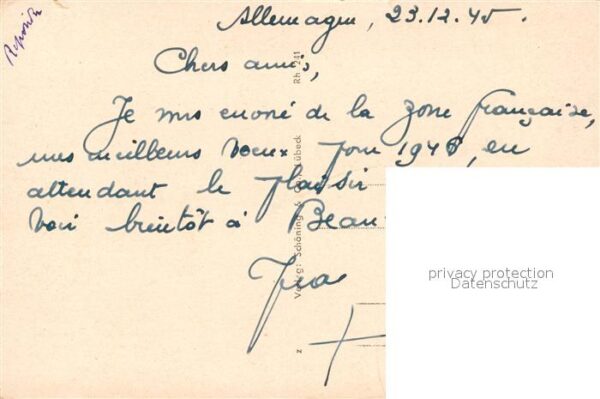 Réponde
Allemagne, 23.12.45.
Chers amis,
Je vous envoie de la zone française,
mes meilleurs voeux pour 1946, en
attendant le plaisir
voir bientôt à Beau
Rh 241
Verlag: Schöning & Co., Lübeck
z
privacy protection
Datenschutz